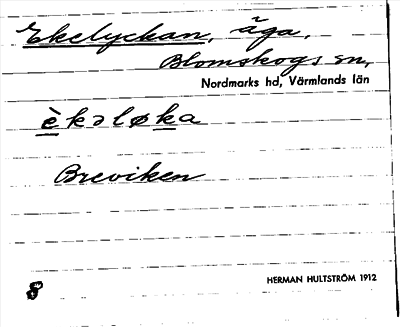 Ekelyckan, äga,
Blomskogs sn,
Nordmarks hd, Värmlands län
èkəløka
Breviken
8
HERMAN HULTSTRÖM 1912